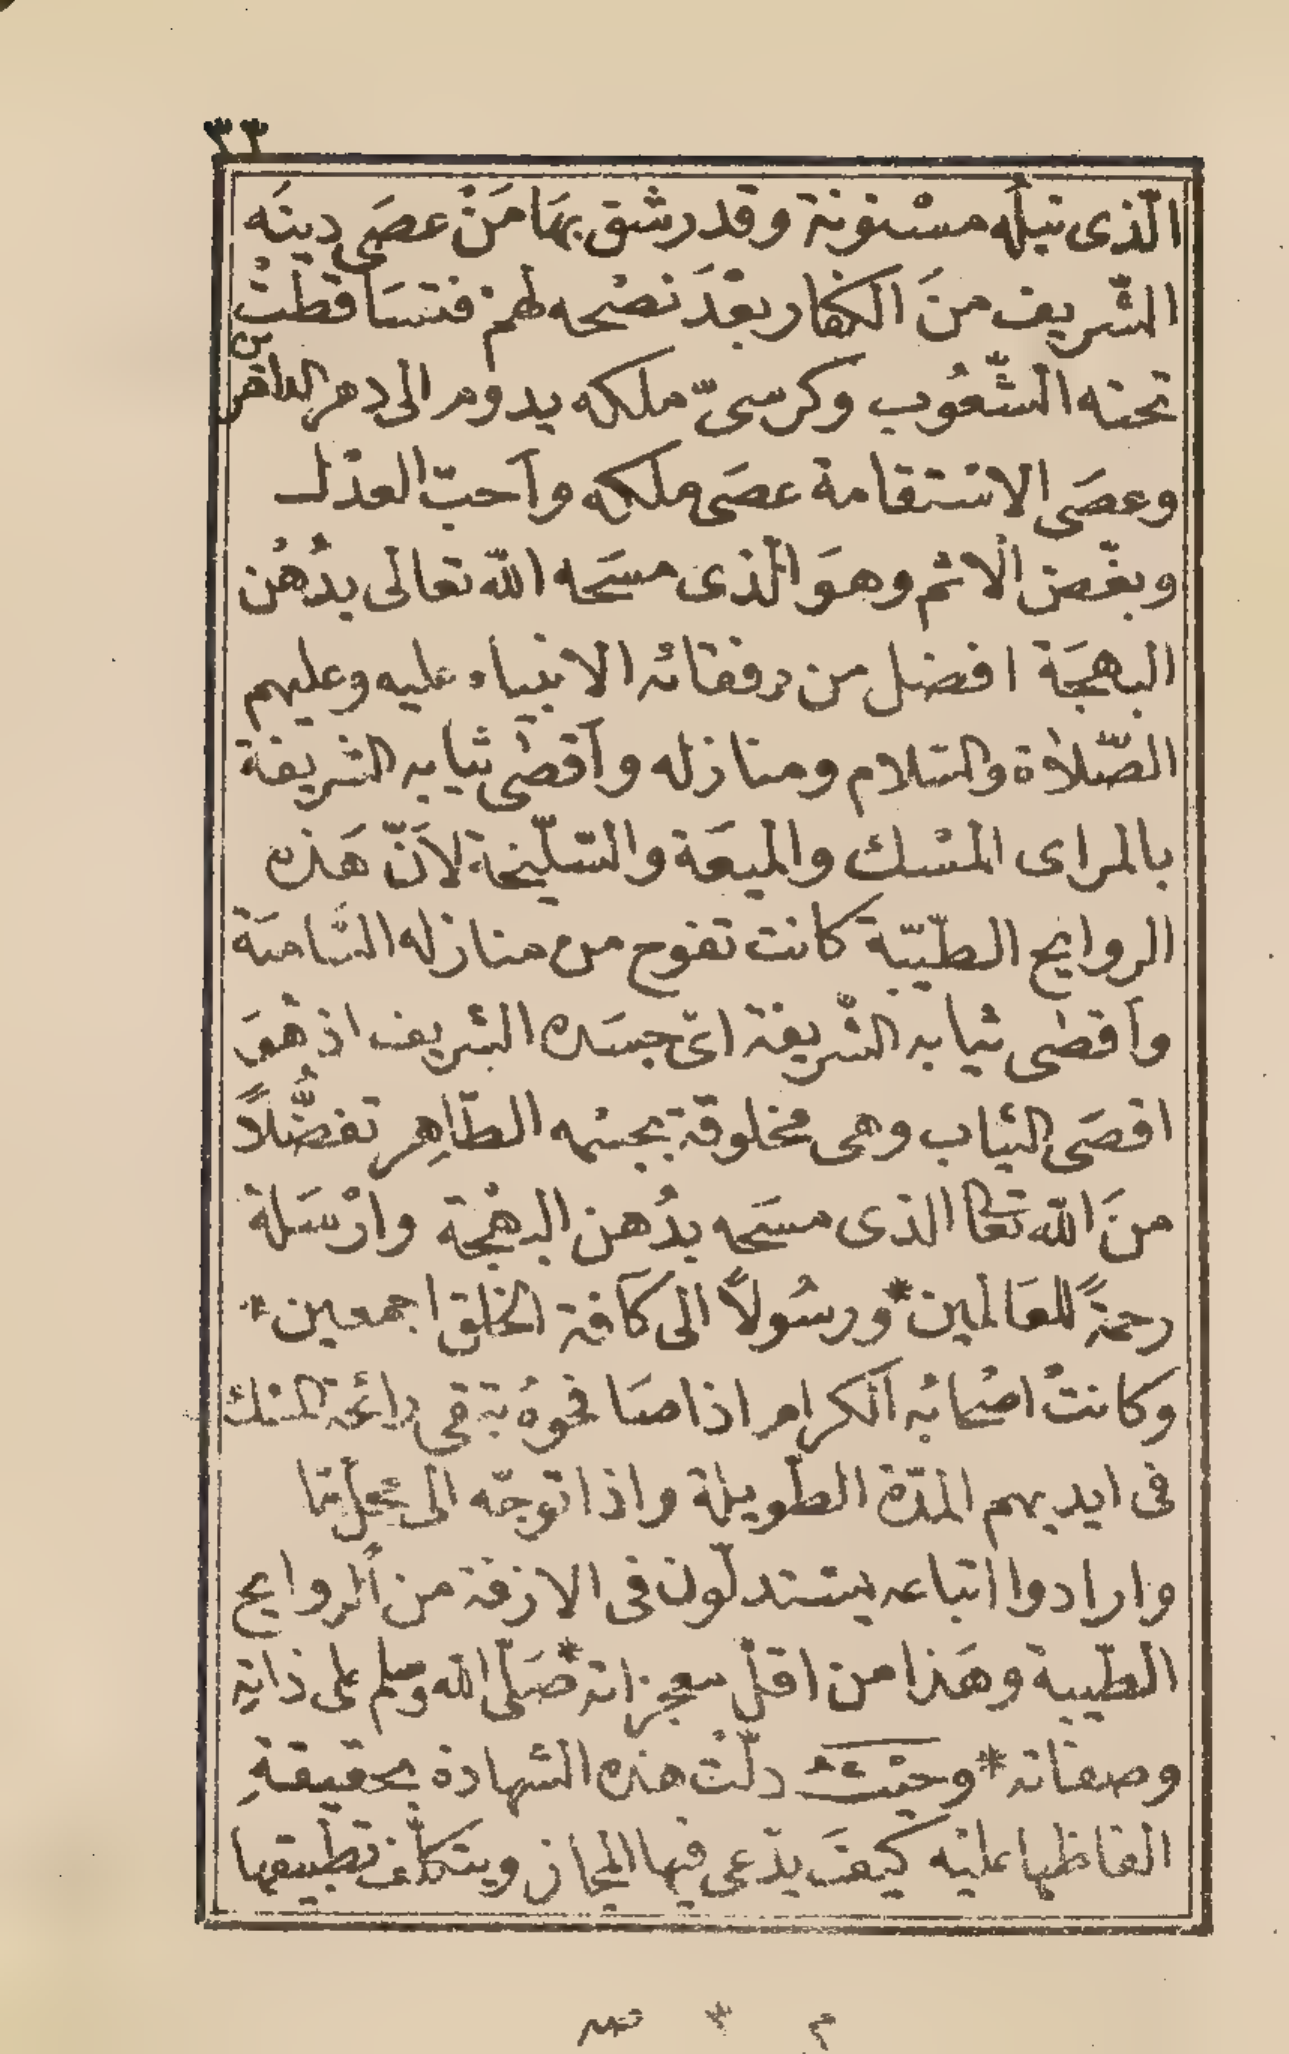 ٣٣
الّذى نبلُه مسْنونة وقد رشق بهَا مَنْ عصَى دينَه
الشّريف منَ الكفار بعْدَ نصْحه لهم فتسَاقطتْ
تحته الشّعُوب وكرسىّ ملكه يدوم الى دهر الداهرين
وعصَى الاسْتقامة عصَى ملكه وآحبّ العدْل
وبغّض الْاثم وهوَ الّذى مسَحه الله تعالى بدُهْن
البهجَة افضل من رفقائه الانبياء عليه وعليهم
الصّلاٰة والسّلام ومنازله وآقصٰى ثيابه الشريفة
بالمراى المسْك والميعَة والسّليْخة لاَنّ هَذه
الروايح الطيّبَة كانت تفوح من منازله السَّاميَة
وآقصٰى ثيابه الشّريفة اىّ جسَده الشريف اذ هُوَ
اقصَى الثياب وهى مخلوقة بجسْمه الطّاهِر تفضُّلاً
منَ الله تعا الذى مسَحه بدُهن البهْجة وارْسَلهُ
رحمةً للعَالمين * ورسُولاً الى كآفة الخلق اجمعين *
وكانتْ اصْحابُه الْكرام اذا صَافحوهُ تبقى رائحة المسْك
فى ايديهم المدّة الطّويلة واذا توجّه الى محلّ مّا
وارادوا اتباعه يستدلّون فى الازقة من الروايح
الطيّبة وهَذا من اقلّ معجزاته * صَلّى الله وسلم على ذاته
وصفاته * وحيْثُ دلّتْ هذه الشهادة بحقيقةِ
الفاظها عليْه كيفَ يدّعى فيها المجاز ويتكلّف تطبيقها